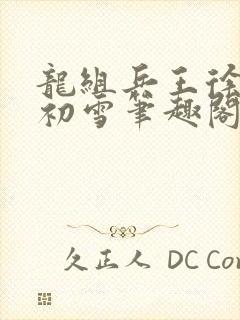 龍組兵王徐
初雪筆趣閣
久正人 DC Co